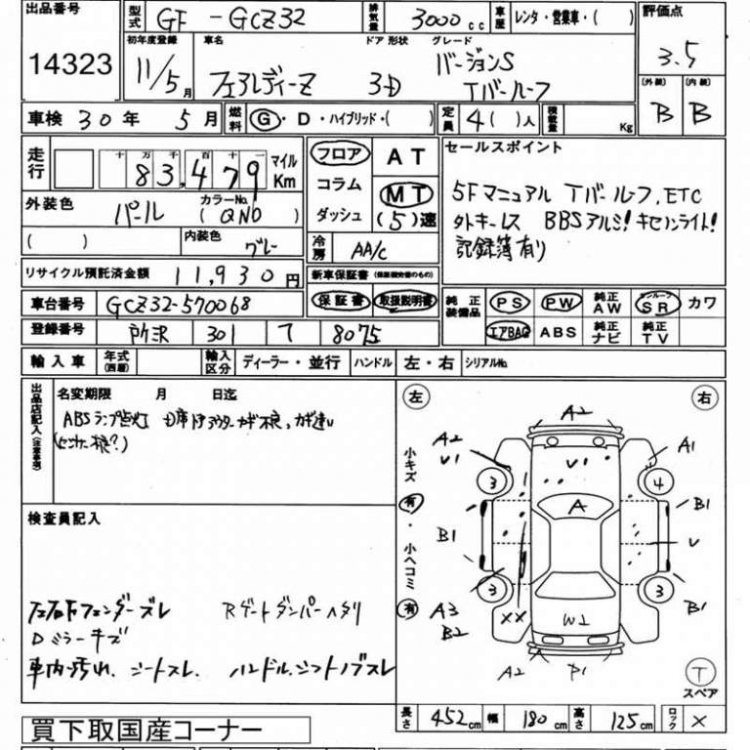 出品番号 14323
型式 GF - GCZ32 排気量 3000cc 車歴 レンタ・営業車・( )
初年度登録 11/5月 車名 フェアレディーZ ドア 形状 3D グレード バージョンS Tバールーフ
評価点 3.5
(外装) B (内装) B
車検 30年 5月 燃料 G・D・ハイブリッド・( ) 定員 4( )人 積載量 Kg
走行 十万千百十一 83,479 マイル Km
フロア AT
コラム MT
ダッシュ (5)速
セールスポイント
5Fマニュアル Tバールーフ, ETC
外キーレス BBSアルミ! キセノンライト!
記録簿有り
外装色 パール カラーNo. (QN0)
( ) 内装色 グレー
冷房 AA/C
リサイクル預託済金額 11,930円
新車保証書 (保証継続可能のもの)
保証書 取扱説明書
車台番号 GCZ32-570068
登録番号 所沢 301 7 8075
純正装備品 PS PW 純正AW サンルーフ SR カワ
エアBAG ABS 純正ナビ 純正TV
輸入車 年式(西暦) 輸入区分 ディーラー・並行 ハンドル 左・右 シリアルNo.
出品店記入(注意事項)
名変期限 月 日迄
ABSランプ点灯 カギ不良, カギ違い
検査員記入
左右Fフェンダーズレ Rゲートダンパーヘタリ
Dミラーキズ
車内汚れ. シートスレ. ハンドル.シフトノブスレ
左 右
小キズ 有・小ヘコミ 有
A2
A2 U1 U1 A1
3 4
A B1
B1 U
3 3
A3 B2 XX W1 B1
A2 P1
T スペア
長さ 452cm 幅 180cm 高さ 125cm ロック ×
買下取国産コーナー